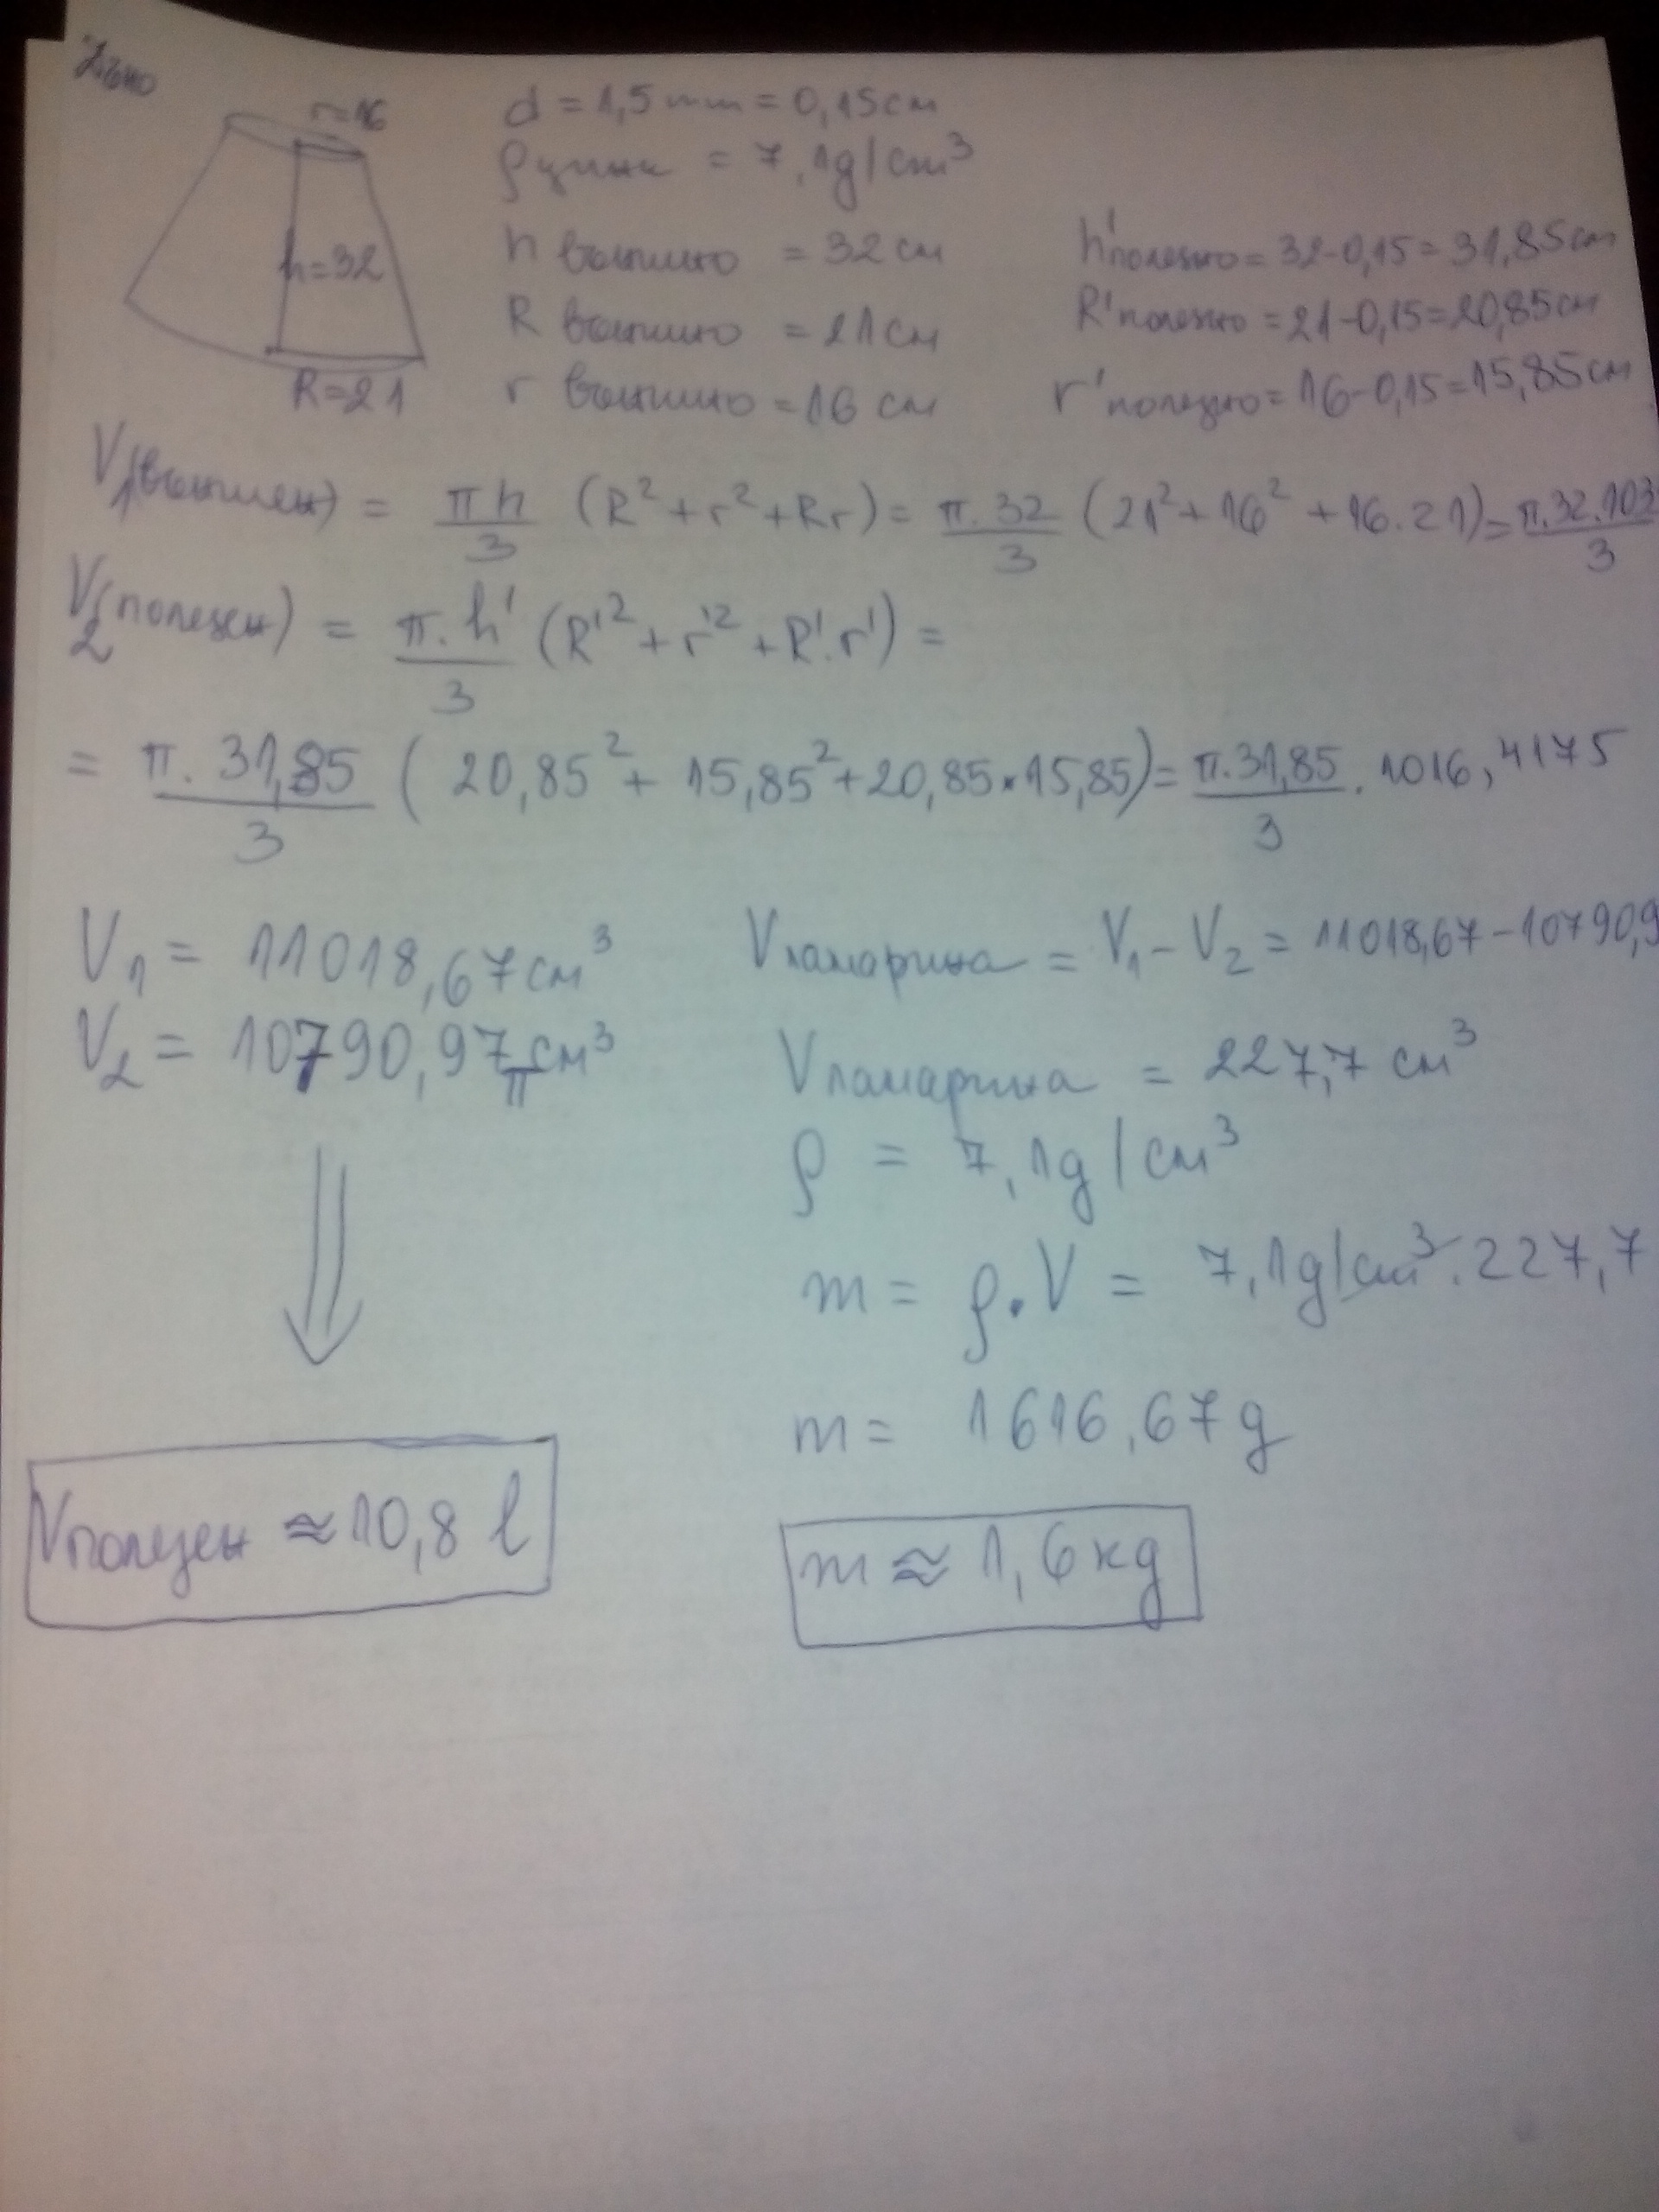 Дъно
r=16
h=32
R=21
d = 1,5 mm = 0,15 см
ρ цинк = 7,1g/cm³
h външно = 32 см
R външно = 21 см
r външно = 16 см
h' полезно = 32-0,15 = 31,85 cm
R' полезно = 21-0,15 = 20,85 см
r' полезно = 16-0,15 = 15,85 см
V₁(външен) = πh/3 (R² + r² + Rr) = π.32/3 (21² + 16² + 16.21) = π.32.103/3
V₂(полезен) = π.h'/3 (R'² + r'² + R'.r') =
= π.31,85/3 (20,85² + 15,85² + 20,85.15,85) = π.31,85/3 . 1016,4175
V₁ = 11018,67 см³
V₂ = 10790,97 см³
π
Vламарина = V₁ - V₂ = 11018,67 - 10790,9
Vламарина = 227,7 см³
ρ = 7,1g/см³
m = ρ.V = 7,1g/cm³.227,7
m = 1616,67g
Vполезен ≈ 10,8 l
m ≈ 1,6 кg